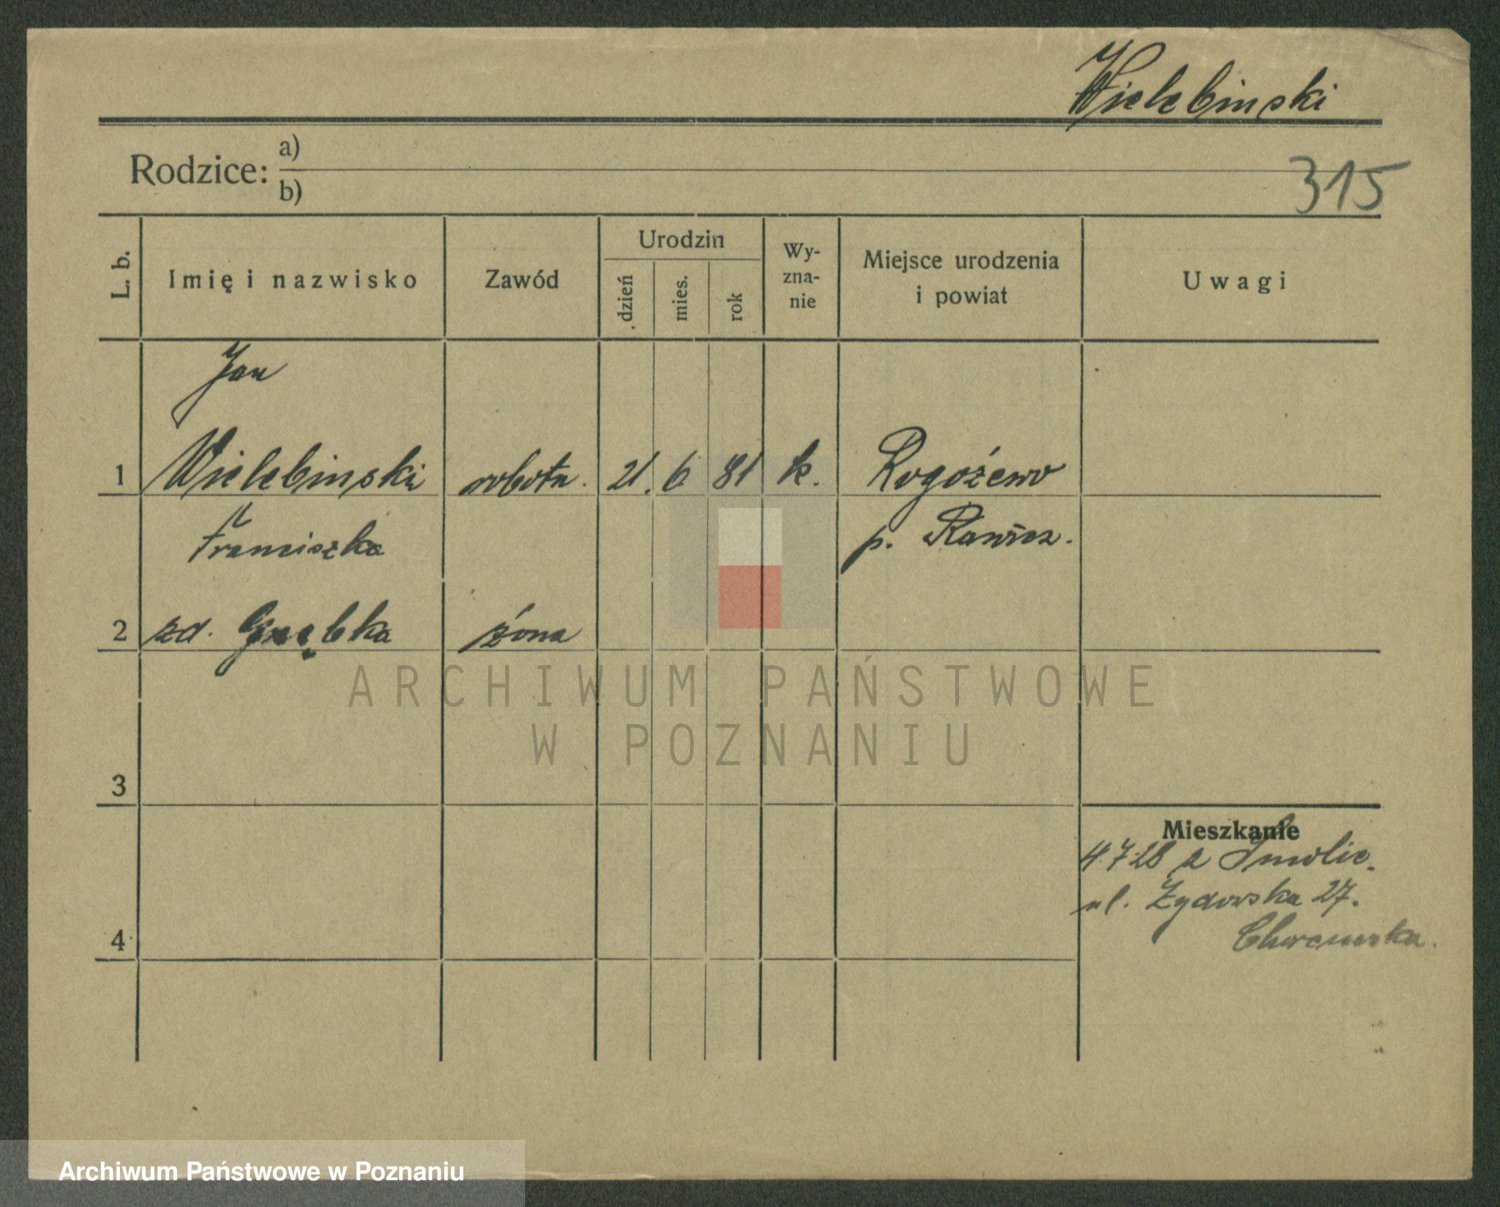 Wielebinski
Rodzice: a)
b)
315
L. b.
Imię i nazwisko
Zawód
Urodzin
dzień
mies.
rok
Wy-
zna-
nie
Miejsce urodzenia
i powiat
Uwagi
Jan
1 Wielebinski robotn. 21. 6 81 k. Rogożewo
Franciszka p. Rawicz.
2 zd. żona
3
Mieszkanie
4 7 28 z Smolic.
ul. Żydowska 27.
4
ARCHIWUM PAŃSTWOWE
W POZNANIU
Archiwum Państwowe w Poznaniu